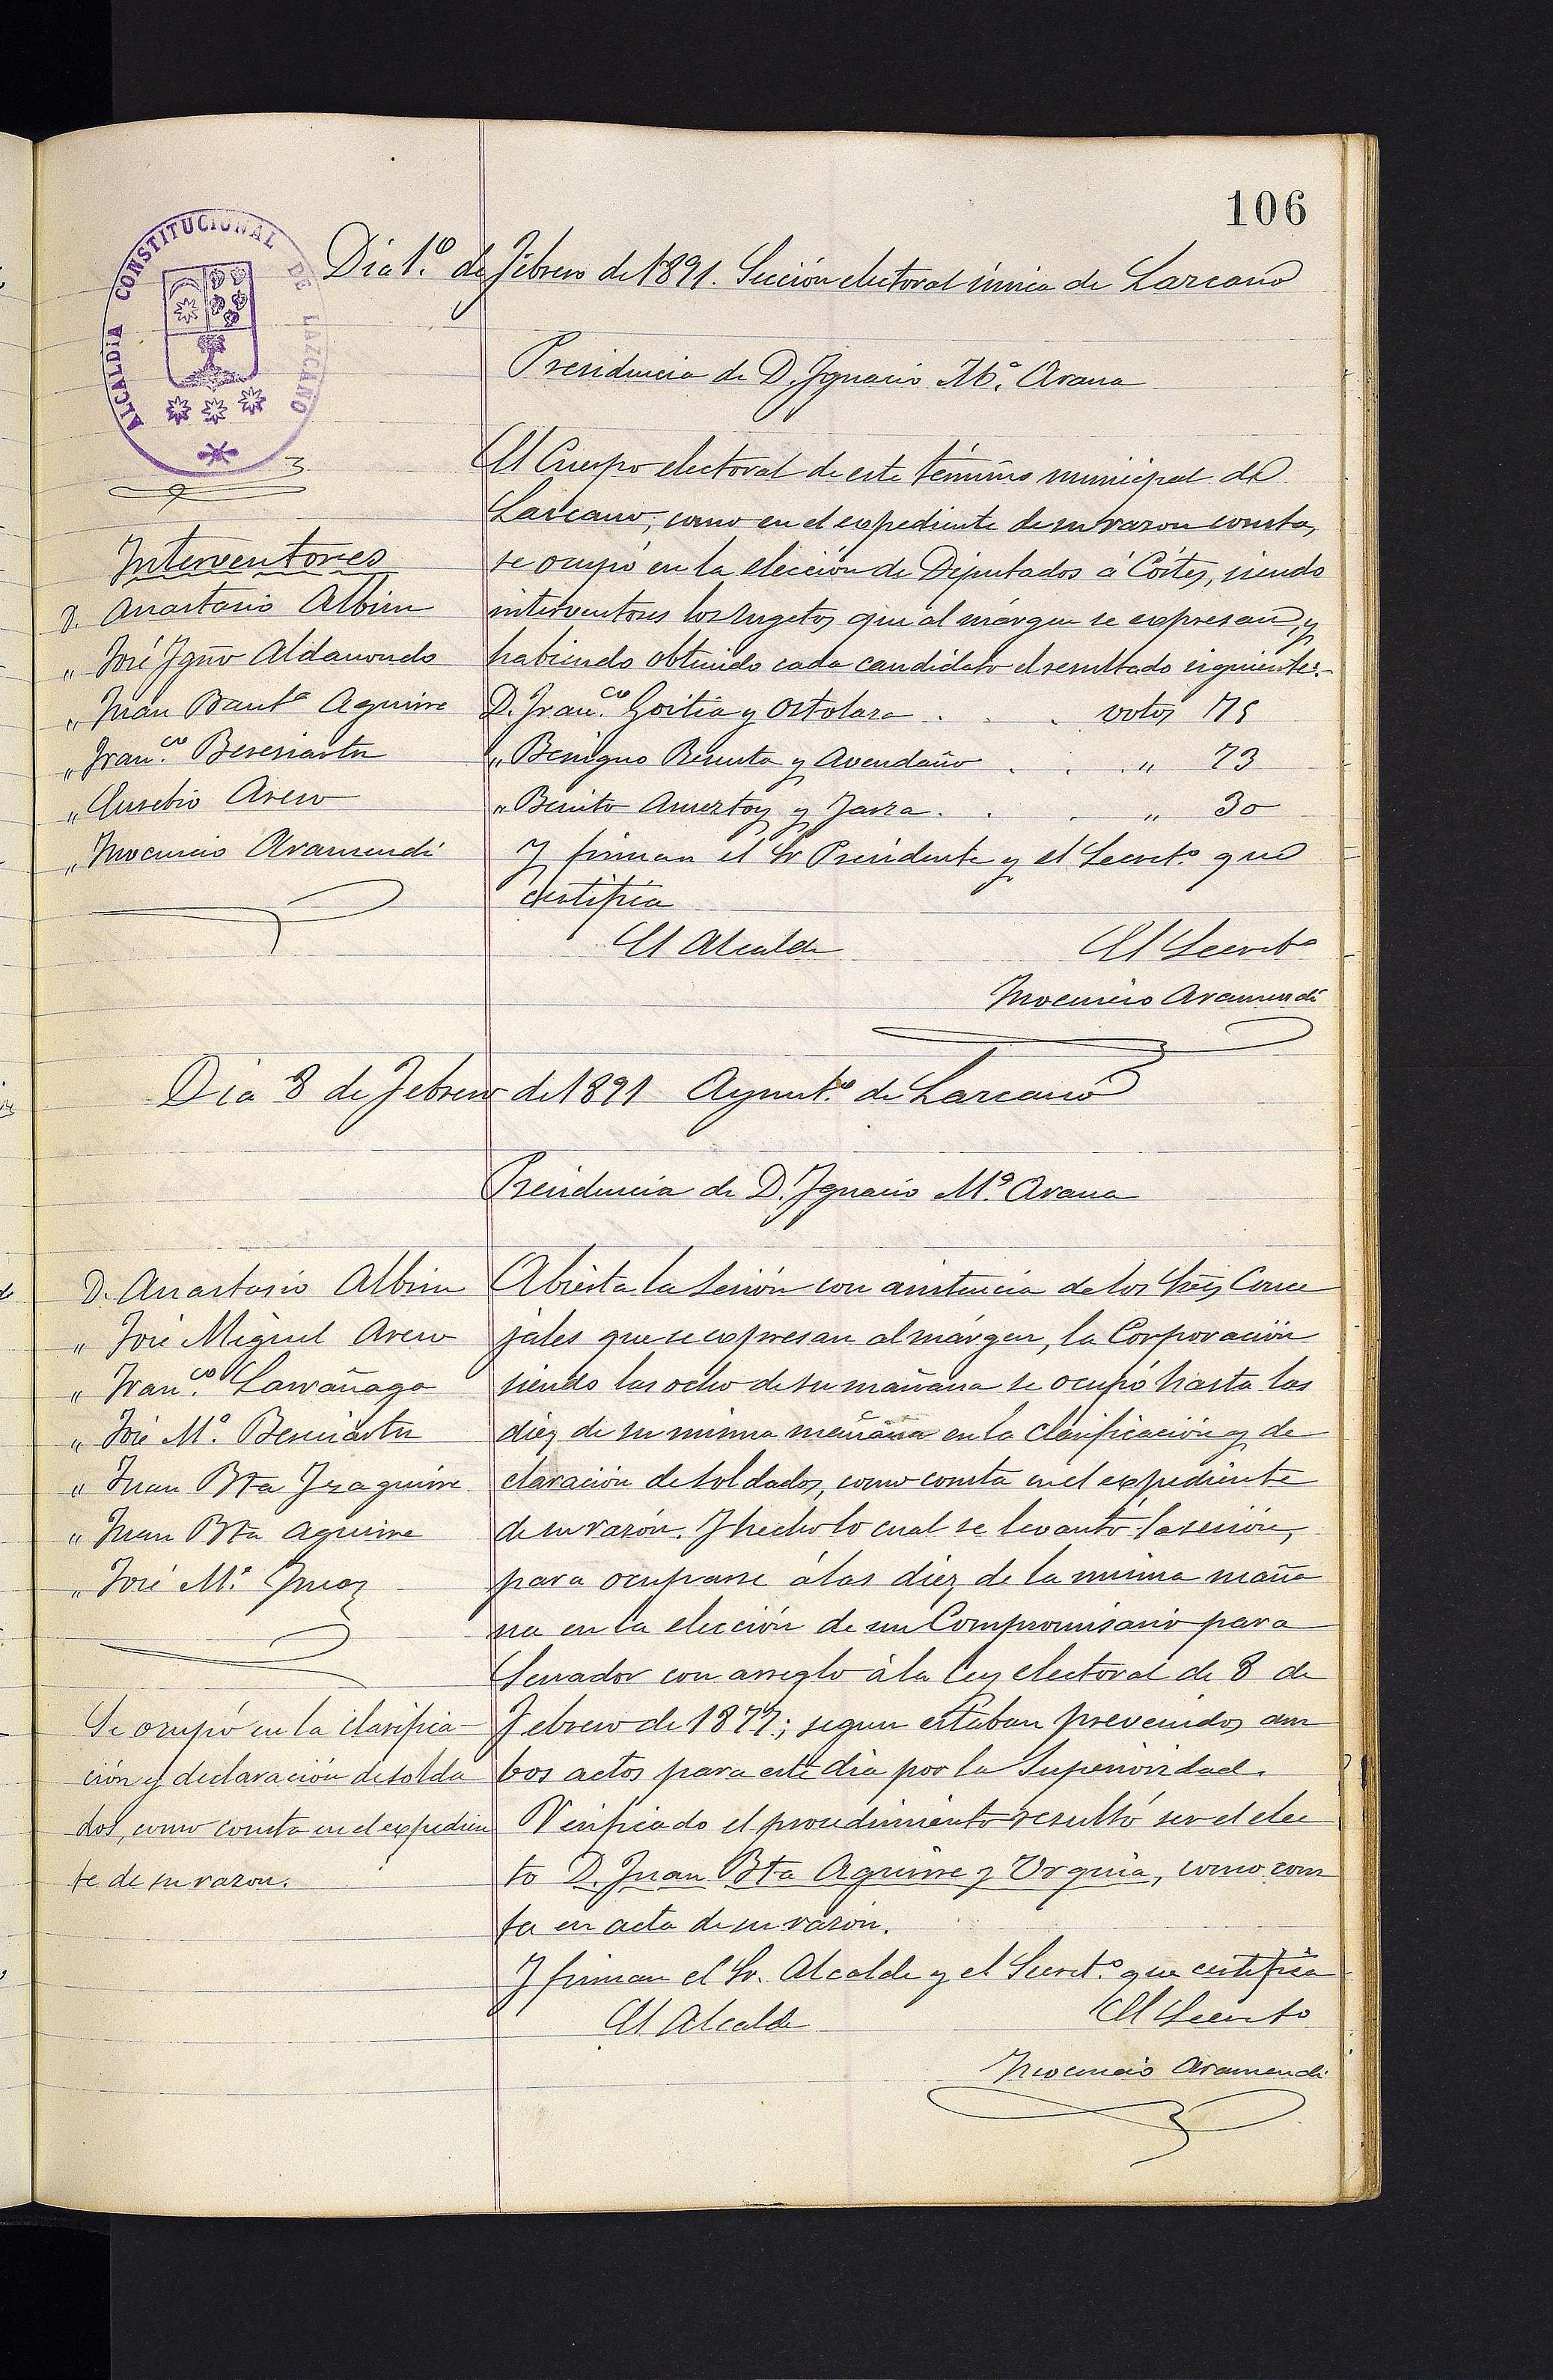 106
ALCALDIA CONSTITUCIONAL DE LAZCANO
Dia 1.º de Febrero de 1891. Sección electoral única de Lazcano
Presidencia de D. Ignacio M.ª Arana
El Cuerpo electoral de este término municipal de
Lazcano, como en el expediente de su razon consta,
se ocupó en la elección de Diputados á Córtes, siendo
interventores los sugetos que al márgen se expresan, y
habiendo obtenido cada candidato el resultado siguiente:
D. Fran.co Goitia y Ostolaza . . . votos 75
" Benigno Rezusta y Avendaño . . . " 73
" Benito Amestoy y . . . " 30
Y firman el Sr Presidente y el Secret.º que
certifica
El Alcalde
El Secretº
Inocencio Aramendi
Interventores
D. Anastasio Albisu
" José Ignº Aldanondo
" Juan Bautª Aguirre
" Fran.co Beresiartu
" Eusebio Areso
" Inocencio Aramendi
Dia 8 de Febrero de 1891 Ayunt.º de Lazcano
Presidencia de D. Ignacio M.ª Arana
D. Anastasio Albisu
" José Miguel Areso
" Fran.co Larrañaga
" José M.ª Beresiartu
" Juan Bta Yzaguirre
" Juan Bta Aguirre
" José M.ª
Se ocupó en la clasifica-
ción y declaración de solda
dos, como consta en el expedien
te de su razon.
Abierta la sesión con asistencia de los Sres Conce
jales que se expresan al márgen, la Corporación
siendo las ocho de su mañana se ocupó hasta las
diez de su misma mañana en la clasificación y de
claración de soldados, como consta en el expediente
de su razón. Y hecho lo cual se levantó la sesión,
para ocuparse á las diez de la misma maña
na en la elección de un Compromisario para
Senador con arreglo á la ley electoral de 8 de
Febrero de 1877; segun estaban prevenidos am
bos actos para este dia por la Superioridad.
Verificado el procedimiento resultó ser el elec
to D. Juan Bta Aguirre y Urquia, como cons
ta en acta de su razón.
Y firman el Sr. Alcalde y el Secret.º que certifica
El Alcalde
El Secreto
Inocencio Aramendi